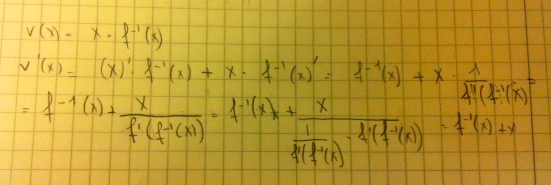 v(x) = x · f⁻¹(x)
v'(x) = (x)' · f⁻¹(x) + x · f⁻¹(x)' = f⁻¹(x) + x · 1/f'(f⁻¹(x)) =
= f⁻¹(x) + x/f'(f⁻¹(x)) = f⁻¹(x) + x/(1/f'(f⁻¹(x)) · f'(f⁻¹(x))) = f⁻¹(x) + x